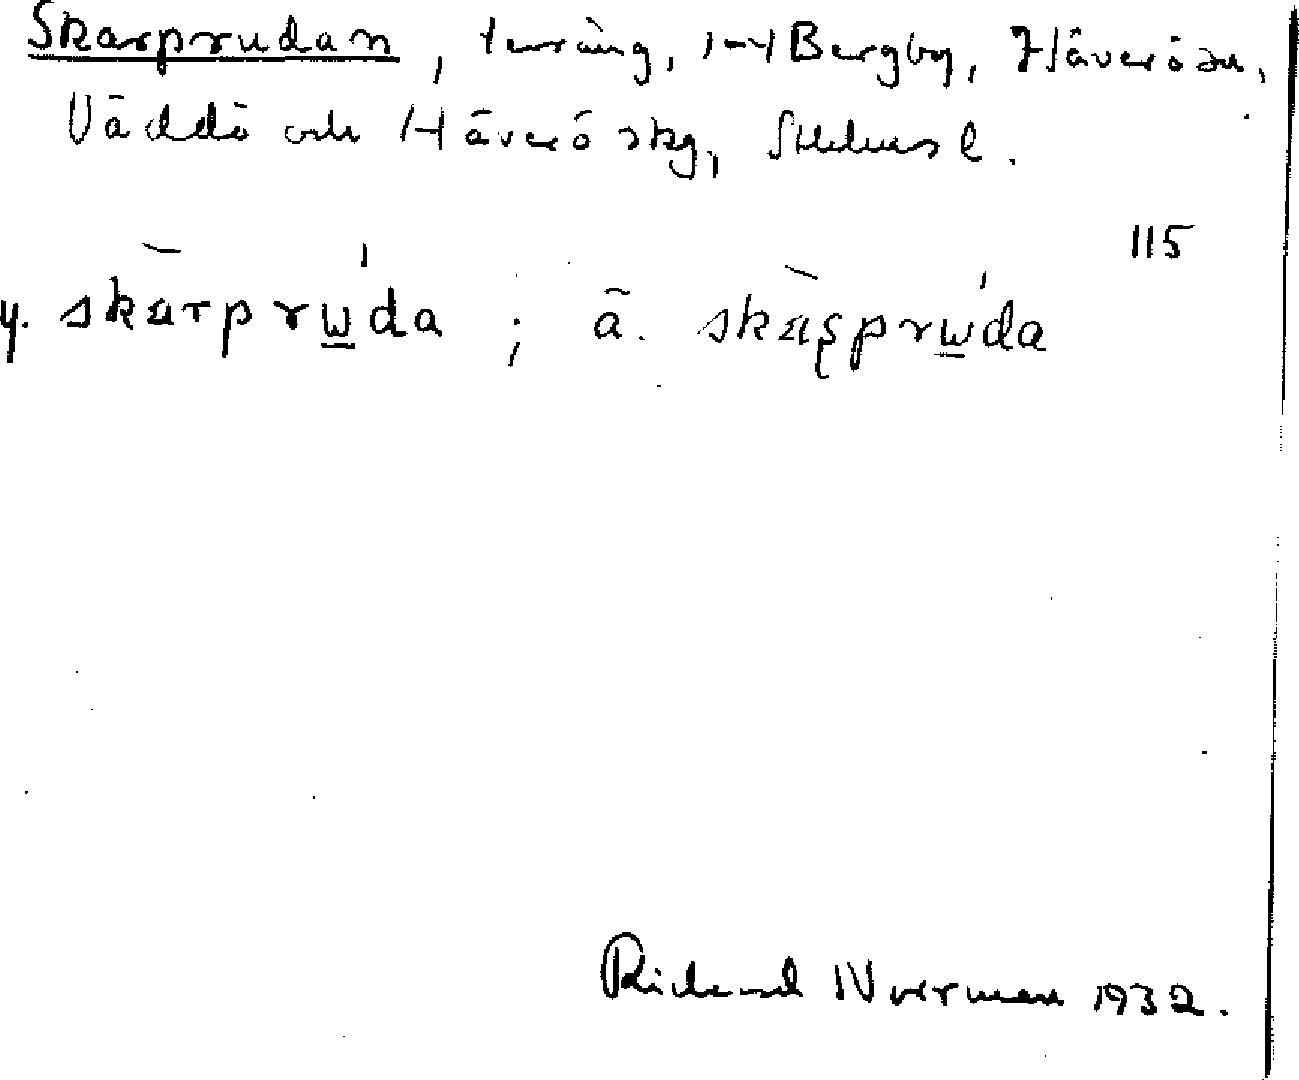 Skarprudan, terräng, 1-4 Bergby, Häverö sn,
Väddö och Häverö skg, Sthlms l.
115
y. skarprɯda ; ä. skaʂprɯda
Richard Norrman 1932.